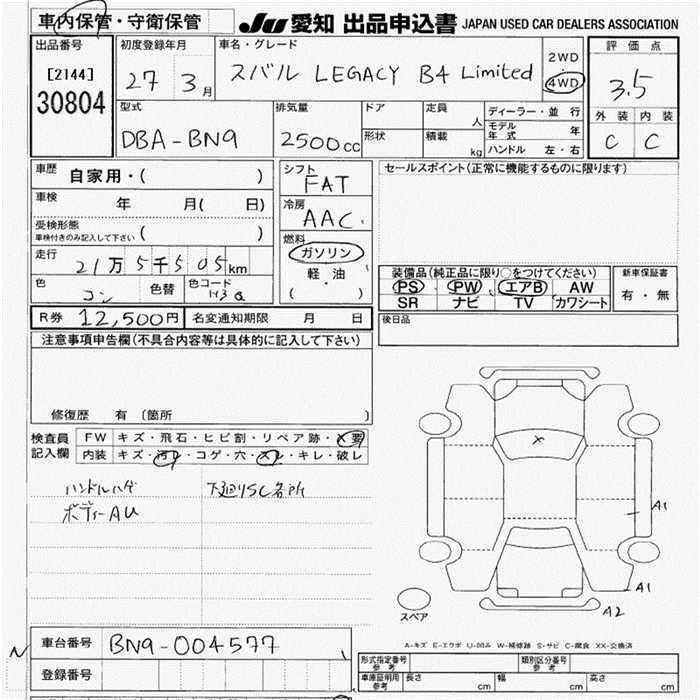 車内保管・守衛保管 JU 愛知 出品申込書 JAPAN USED CAR DEALERS ASSOCIATION
出品番号
[2144]
30804
初度登録年月
27 3月
車名・グレード
スバル LEGACY B4 Limited
2WD
4WD
評価点
3.5
外装 内装
C C
型式
DBA-BN9
排気量
2500cc
ドア
形状
定員 人
積載 kg
ディーラー・並行
モデル年式 年
ハンドル 左・右
車歴 自家用・( )
車検 年 月( 日)
受検形態
車検付きのみ記入して下さい ( )
走行 21万5千505km
色 コン 色替 色コード H3Q
シフト
FAT
冷房
AAC
燃料
ガソリン
軽・油
( )
セールスポイント(正常に機能するものに限ります)
装備品(純正品に限り○をつけてください)
PS PW エアB AW
SR ナビ TV カワシート
新車保証書
有・無
R券 12,500円 名変通知期限 月 日
後日品
注意事項申告欄(不具合内容等は具体的に記入して下さい)
修復歴 有 (箇所 )
検査員記入欄
FW キズ・飛石・ヒビ割・リペア跡・X要
内装 キズ・汚レ・コゲ・穴・スレ・キレ・破レ
ハンドルハゲ 下廻りSC各所
ボディーAU
A1
A1
A2
スペア
A-キズ E-エクボ U-凹み W-補修跡 S-サビ C-腐食 XX-交換済
車台番号 BN9-004577
登録番号
形式指定番号 参考 類別区分番号 参考
車庫証明用 参考 長さ cm 幅 cm 高さ cm